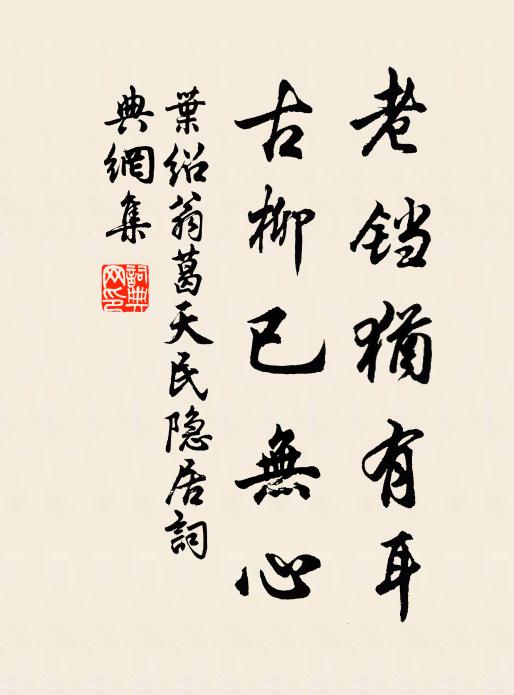 老铛猶有耳
古柳已無心
葉紹翁葛天民隐居詞
典網集
詞典网印